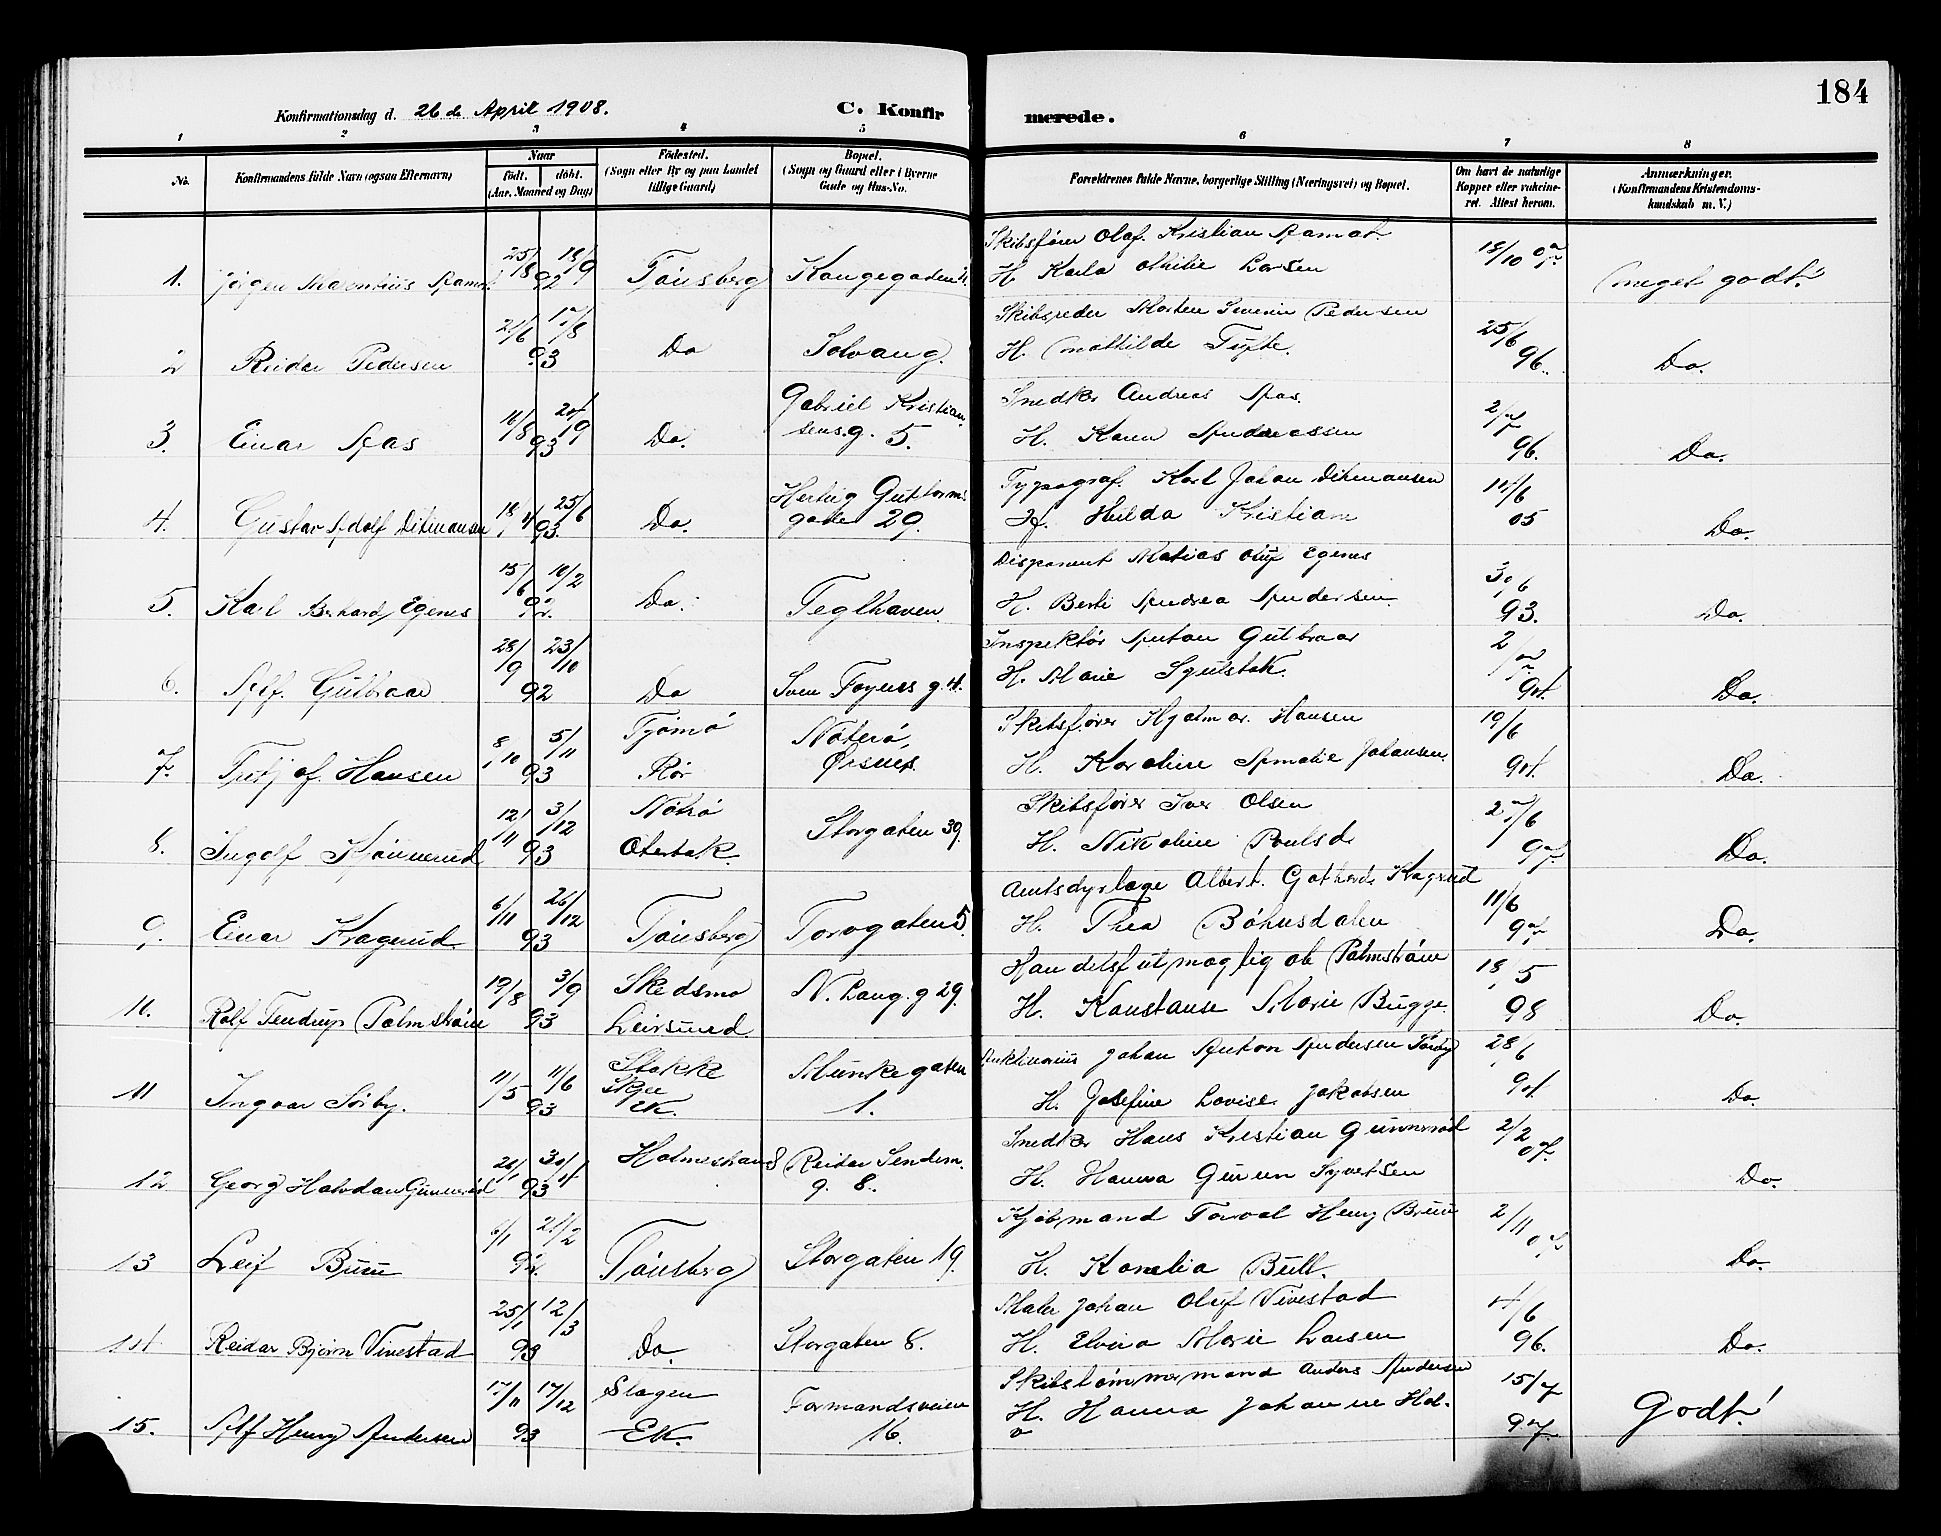 184
Konfirmationsdag d. 26de April 1908.
C. Konfirmerede.
1 2 3 4 5 6 7 8
No.
Konfirmandens fulde Navn (ogsaa Efternavn)
Naar
født. døbt.
(Aar, Maaned og Dag)
Fødested.
(Sogn eller By og paa Landet
tillige Gaard)
Bopæl.
(Sogn og Gaard eller i Byerne
Gade og Hus-No.
Forældrenes fulde Navne, borgerlige Stilling (Næringsvei) og Bopæl.
Om havt de naturlige
Kopper eller vakcine-
ret. Attest herom.
Anmærkninger.
(Konfirmandens Kristendoms-
kundskab m. V.)
1. Jörgen 25/8 18/9 92 Tönsberg Kongegaden
Skibsförer Olaf Kristian
H. Karla Othilie Larsen
18/10 07
Meget godt.
2 Reidar Pedersen 21/6 17/8 93 Do Solvang.
Skibsreder Morten Severin Pedersen
H. Mathilde Tufte.
25/6 96.
Do.
3. Einar Aas 11/8 20/9 93 Do. Gabriel Kristian
sens g. 5.
Snedker Andreas Aas.
H. Karen Andreassen
2/7 96.
Do.
4. Gustav Adolf Ditmansen 18/4 25/6 93. Do. Hertug Guttorms
gade 29.
Typograf. Karl Johan Ditmansen
H. Hulda Kristians
14/6 05
Do.
5. Karl Bernhard Egenes 15/6 92. Do. Teglhaven.
Disponent Matias Oluf Egenes
H. Berte Andrea Andersen.
30/6 93.
Do.
6. Alf. Gulbraar 28/9 23/10 92 Do Sven Foyns g. 4.
Inspektör Anton Gulbraar
H. Marie
2/ 94.
Do.
7. Fritjof. Hansen 8/10 5/11 93 Tjömö Nöterö,
Rör Örsnes.
Skibsförer Hjalmar Hansen
H. Karoline Amalie Johansen.
19/6 94.
Do.
8. Ingolf 12/11 3/12 93 Nötrö
Oterbæk. Storgaten 39.
Skibsförer Iver Olsen
H. Nikoline Poulsd.
27/6 97.
Do.
9. Einar Kragerud 6/11 26/12 93 Tönsberg Torvgaten 5.
Amtsdyrlæge Albert. Kragrud
H. Thea Böhusdalen
11/6 97
Do.
10. Rolf Palmström 19/8 3/9 93 Skedsmo
Leirsund. N. Lang. g 29.
Handelsfulmægtig ob Palmström
H. Konstanse Marie Bugge.
18/5 98
Do.
11 Ingvar Sörby. 11/5 11/6 93 Stokke
Skjee
EK. Munkegaten
1.
Johan Anton Andersen Sörby
H. Josefine Lovise Jakobsen
28/6 94.
Do.
12 Georg Halvdan Gunneröd 93 Holmestrand Reidar Sendem.
g. 8.
Snedker Hans Kristian Gunneröd
H. Hanna Syvertsen
2/2 07.
Do.
13 Leif Bruu 6/1 21/2 Tönsberg Storgaten 19.
Kjöbmand Torval Henry Bruu
H. Kornelia Bull.
2/11 07
Do.
14 Reidar Bjørn Vivestad 25/1 12/3 93 Do. Storgaten 8.
Maler Johan Oluf Vivestad
H. Elvira Marie Larsen
4/6 96.
Do.
15. Alf Henry Andersen 17/11 17/12 93 Slagen
EK. Formandsveien
16.
Skibstömmermand Anders Andersen
H. Hanna Johanne
15/7 97.
Godt!